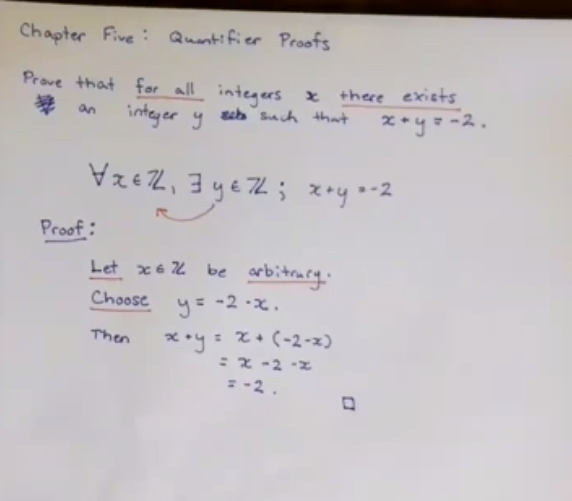 Chapter Five: Quantifier Proofs
Prove that for all integers x there exists
an integer y such that x+y=-2.
∀x∈ℤ, ∃y∈ℤ; x+y=-2
Proof:
Let x∈ℤ be arbitrary.
Choose y = -2-x.
Then x+y = x+(-2-x)
= x-2-x
= -2. □